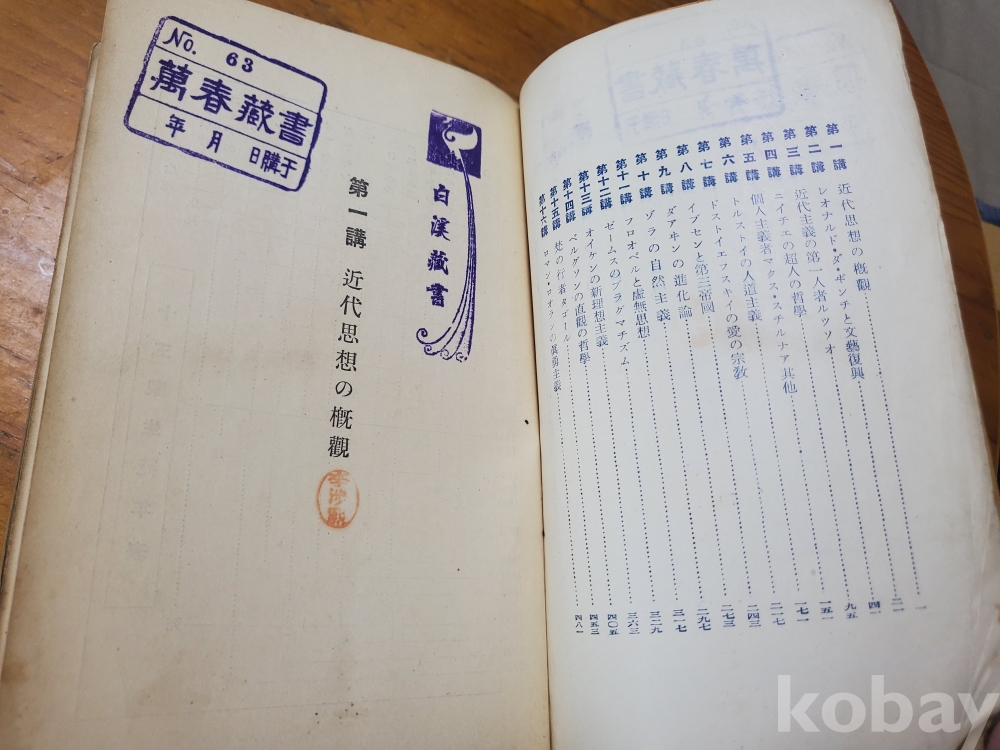 第一講 近代思想の概觀……一
第二講 レオナルド・ダ・ヸンチと文藝復興……二一
第三講 近代主義の第一人者ルツソオ……四一
第四講 ニイチエの超人の哲學……九五
第五講 個人主義者マクス・スチルナア其他……一五一
第六講 トルストイの人道主義……一七一
第七講 ドストイエフスキイの愛の宗敎……二一七
第八講 イプセンと第三帝國……二四三
第九講 ダアヰンの進化論……二七三
第十講 ゾラの自然主義……二九七
第十一講 フロオベルと虛無思想……三一七
第十二講 ゼームスのプラグマチズム……三二九
第十三講 オイケンの新理想主義……三六三
第十四講 ベルグソンの直觀の哲學……四〇五
第十五講 梵の行者タゴール……四五三
第十六講 ロマン・ロオランの眞勇主義……四八一
No. 63
萬春藏書
年 月 日購于
白溪藏書
第一講 近代思想の概觀
kobay